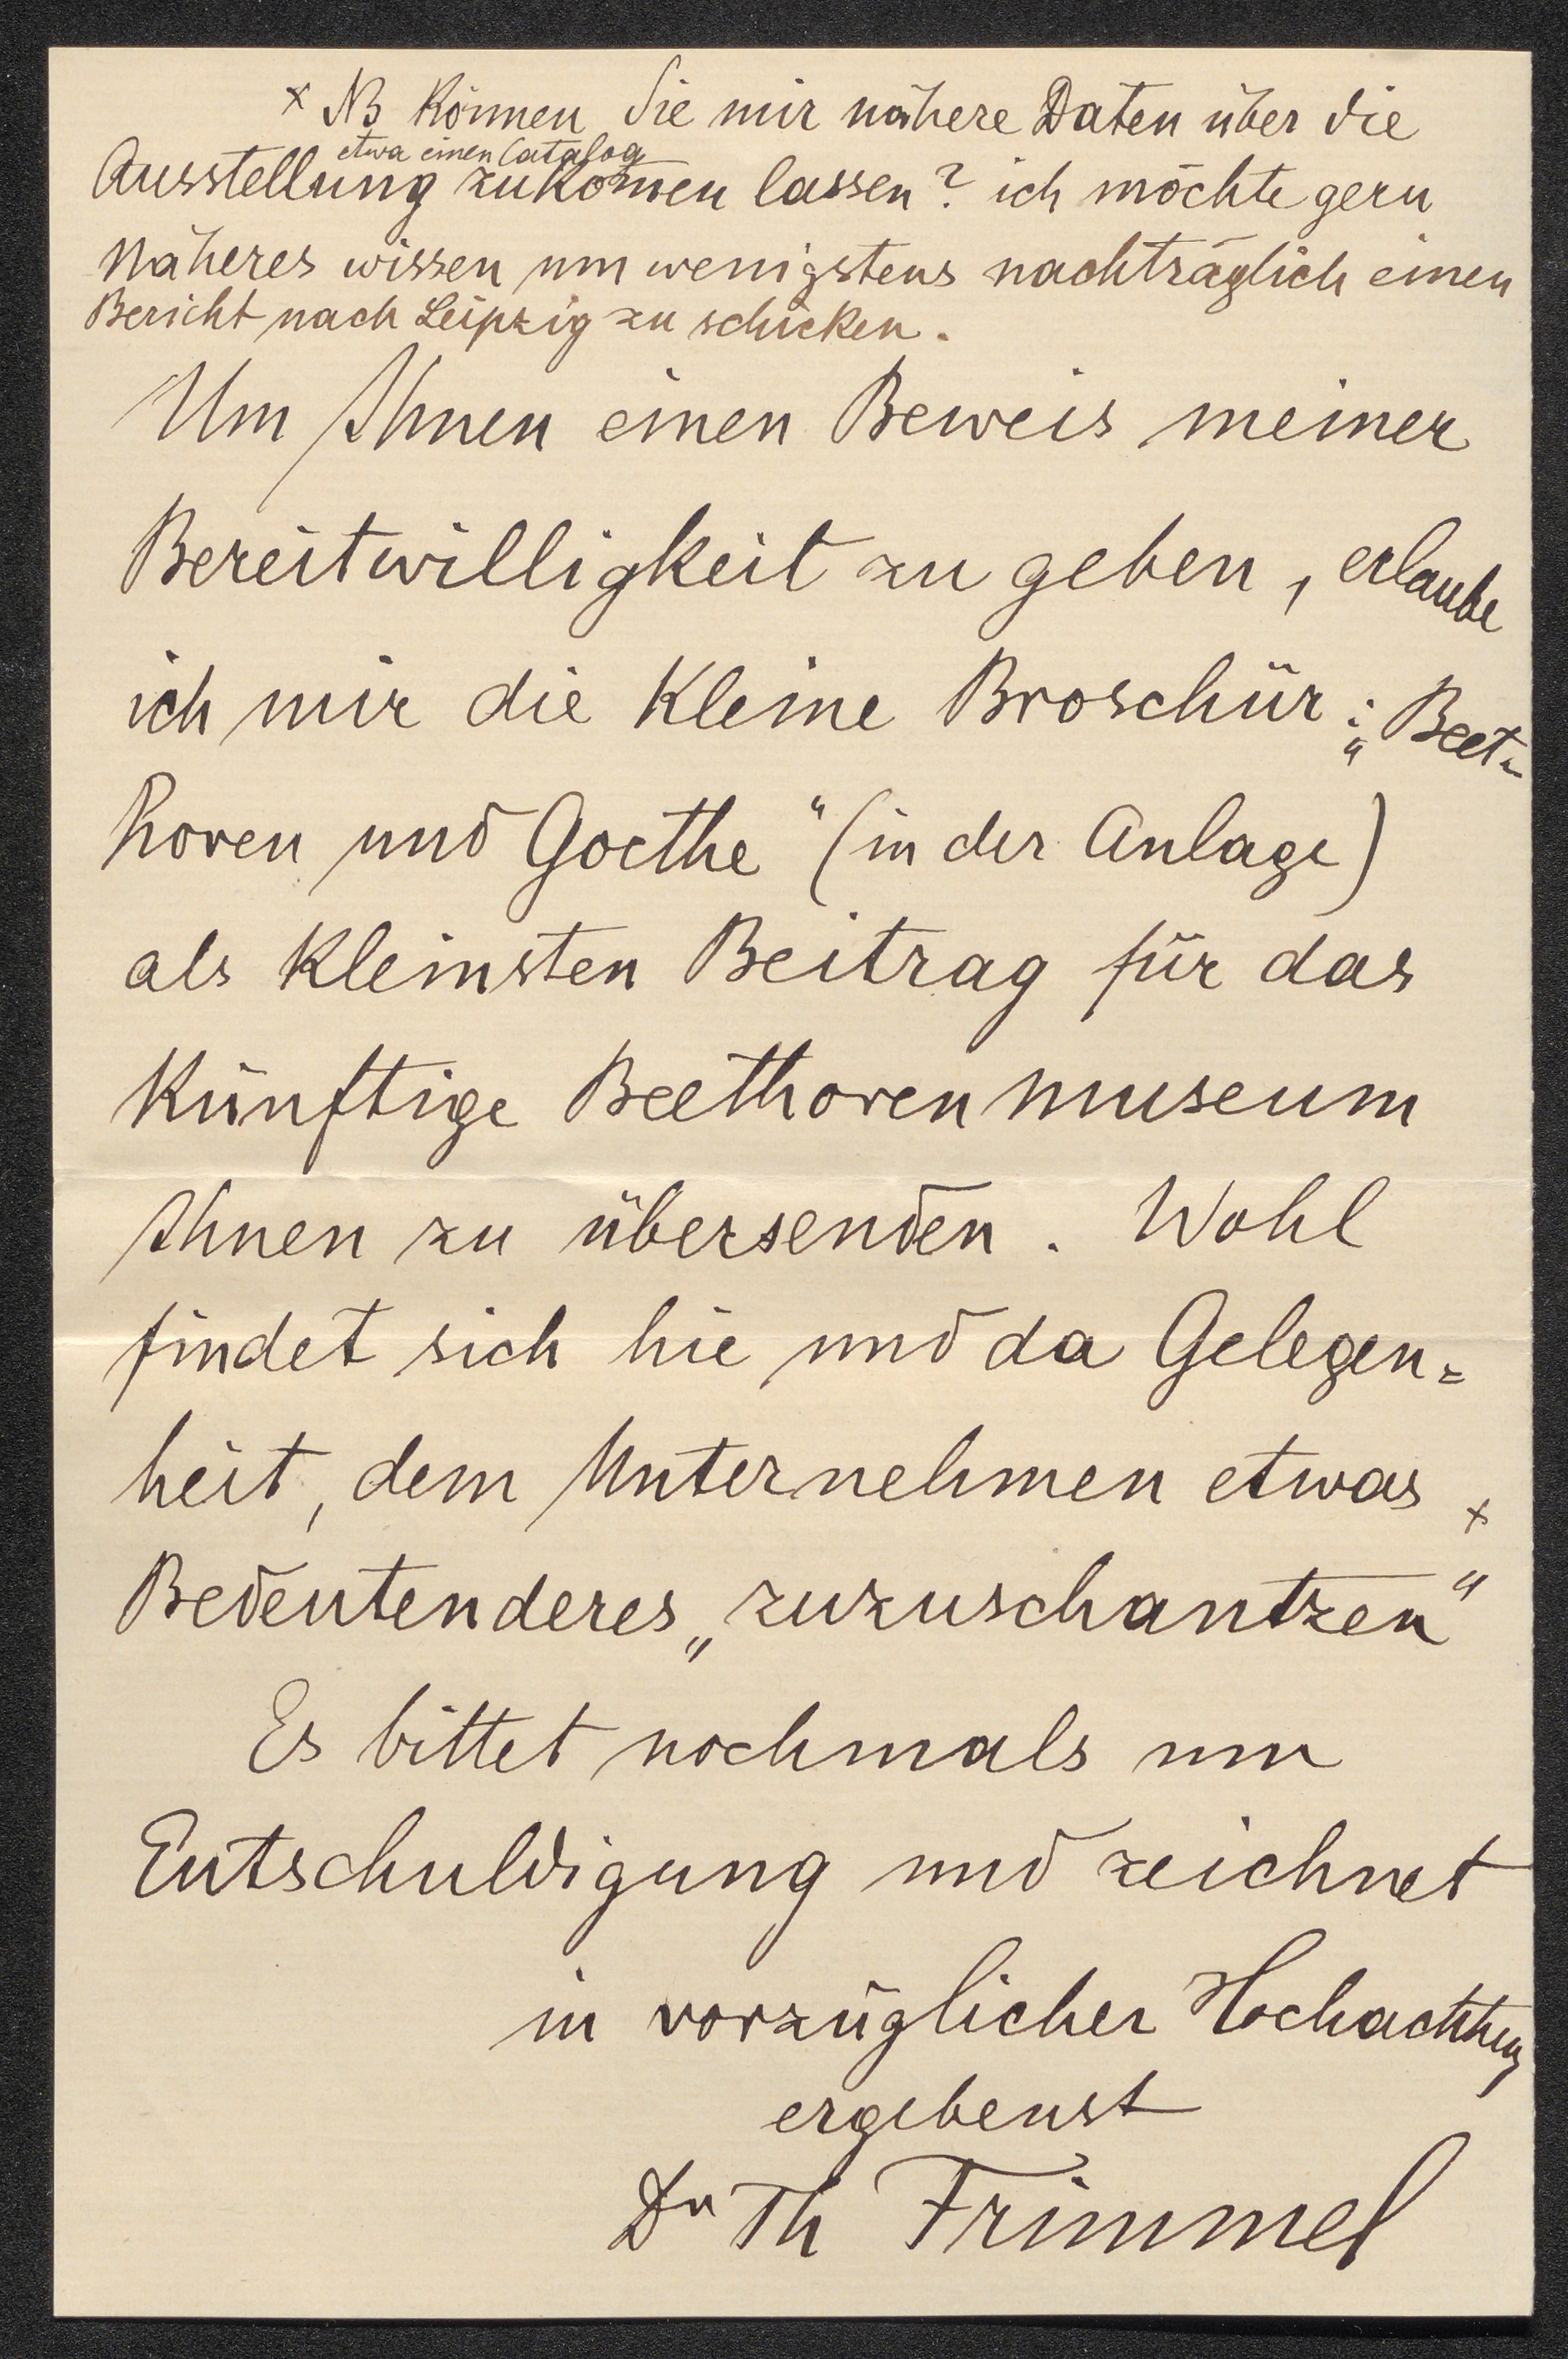 × NB Können Sie mir nähere Daten über die
etwa einen Catalog
Ausstellung zukom̄en lassen? ich möchte gern
Näheres wissen um wenigstens nachträglich einen
Bericht nach Leipzig zu schicken.
Um Ihnen einen Beweis meiner
Bereitwilligkeit zu geben, erlaube
ich mir die kleine Broschür: „Beet-
hoven und Goethe“ (in der Anlage)
als kleinsten Beitrag für das
künftige Beethovenmuseum
Ihnen zu übersenden. Wohl
findet sich hie und da Gelegen=
heit, dem Unternehmen etwas ×
Bedeutenderes „zuzuschantzen“
Es bittet nochmals um
Entschuldigung und zeichnet
in vorzüglicher Hochachtung
ergebenst
Dr Th Frimmel